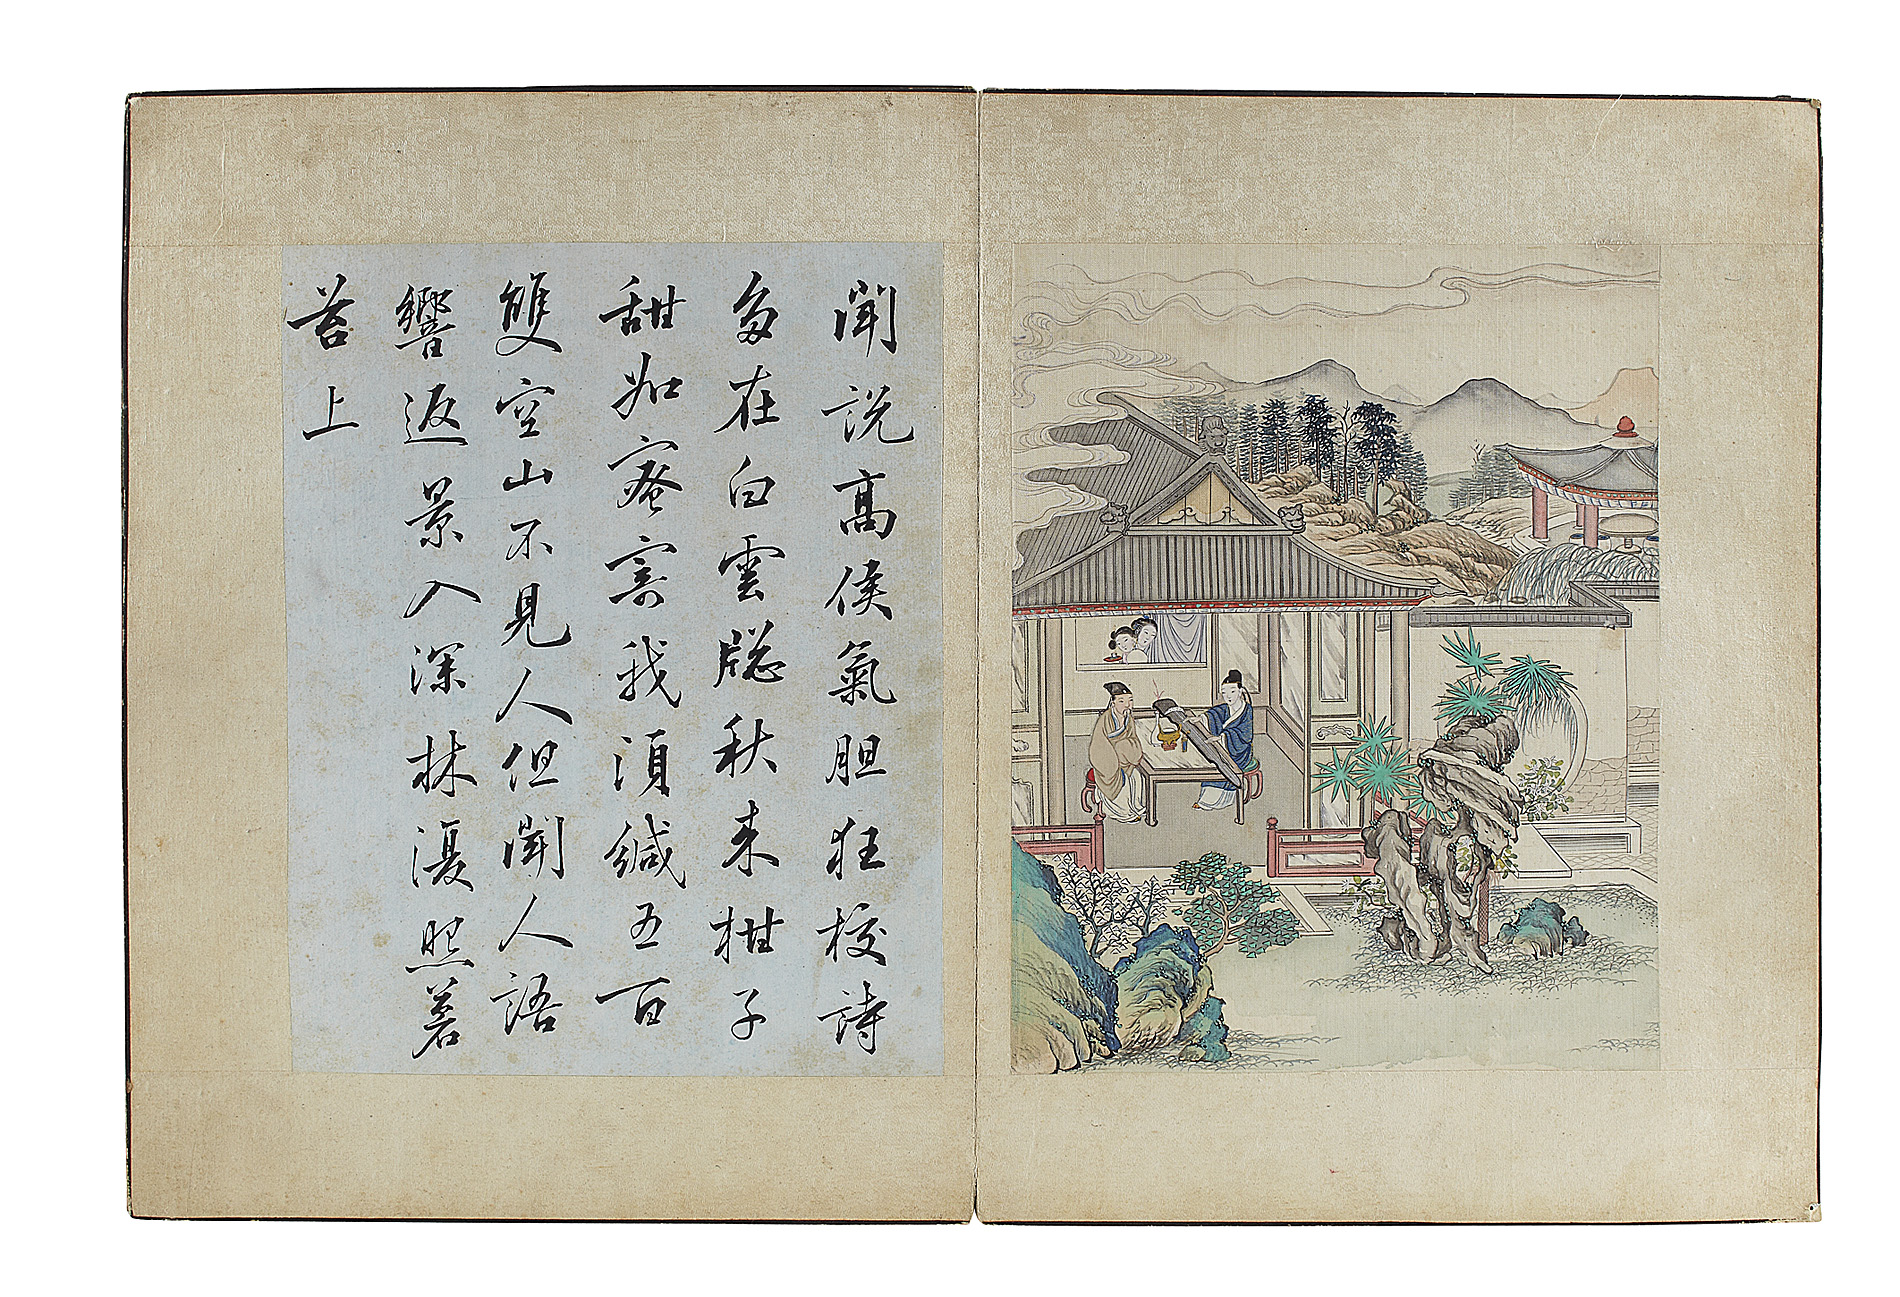 聞說高侯氣膽狂校詩
多在白雲牎秋来柑子
甜如蜜寄我須緘五百
雙空山不見人但聞人語
響返景入深林復照着
苔上